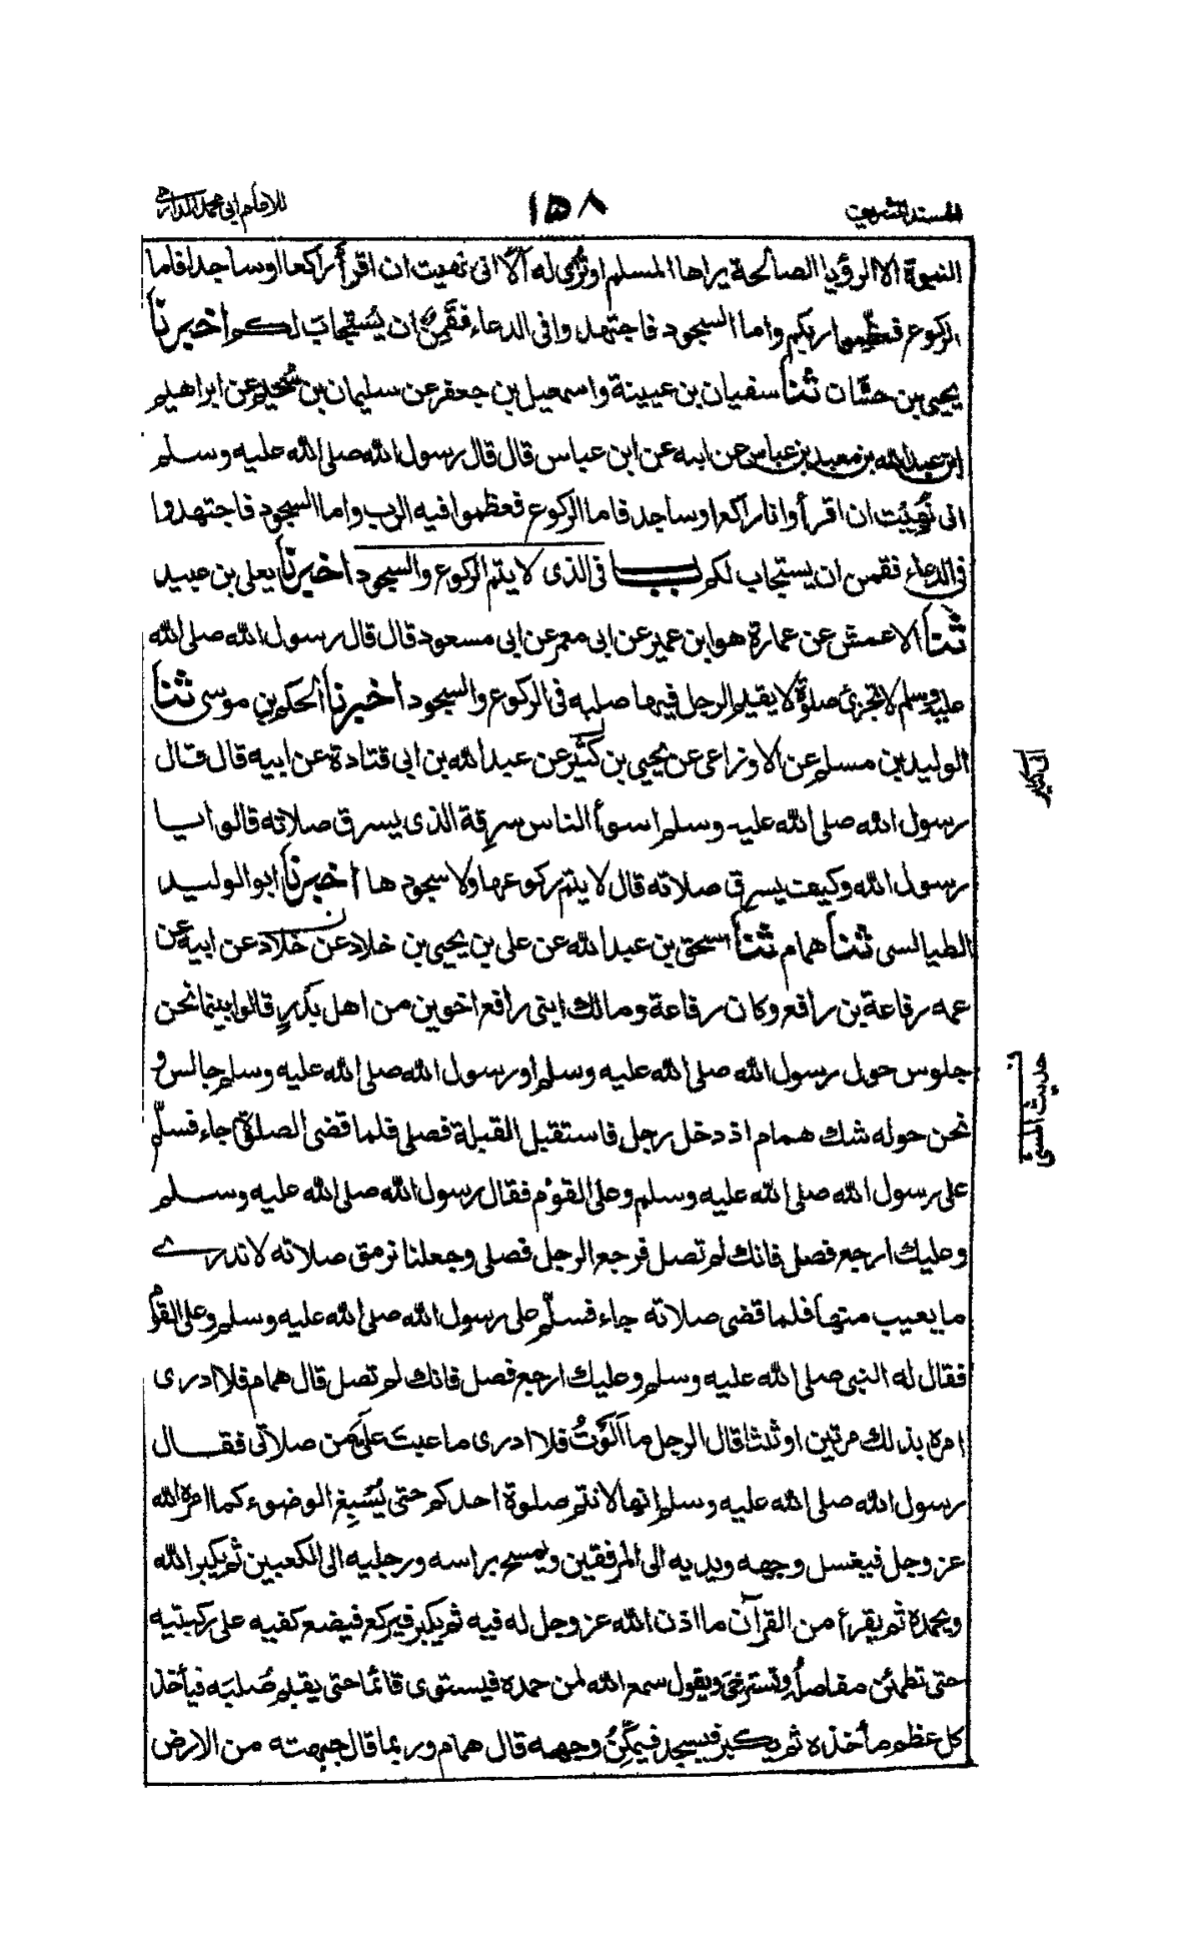 المسند الشريف
١٥٨
للامام ابي محمد الدارمي
النبوة الا الرؤيا الصالحة يراها المسلم او تُرٰى له اَلَا انى نهيت ان اقرأ راكعا او ساجدا فاما
الركوع فعظّموا ربكم واما السجود فاجتهدوا فى الدعاء فقَمِنٌ ان يُستجابَ لكم اخبرنا
يحيى بن حسّان ثنا سفيان بن عيينة واسمعيل بن جعفر عن سليمان بن سُحيم عن ابراهيم
ابن عبدالله بن معبد بن عباس عن ابيه عن ابن عباس قال قال رسول الله صلى الله عليه وسلم
انى نُهِيْت ان اقرأ وانا راكع او ساجد فاما الركوع فعظموا فيه الرب واما السجود فاجتهدوا
فى الدعاء فقمن ان يستجاب لكم باب فى الذى لا يتم الركوع والسجود اخبرنا يعلى بن عبيد
ثنا الاعمش عن عمارة هو ابن عمير عن ابى معمر عن ابى مسعود قال قال رسول الله صلى الله
عليه وسلم لا تجزئ صلوة لا يقيم الرجل فيها صلبه فى الركوع والسجود اخبرنا الحكم بن موسى ثنا
الوليد بن مسلم عن الاوزاعى عن يحيى بن كثير عن عبد الله بن ابى قتادة عن ابيه قال قال
رسول الله صلى الله عليه وسلم اسوأ الناس سرِقة الذى يسرق صلاته قالوا يا
رسول الله وكيف يسرق صلاته قال لا يتم ركوعها ولا سجودها اخبرنا ابو الوليد
الطيالسى ثنا همام ثنا اسحق بن عبد الله عن على بن يحيى بن خلاد عن خلاد عن ابيه عن
عمه رفاعة بن رافع وكان رفاعة ومالك ابنى رافع اخوين من اهل بَدْرٍ قالوا بينما نحن
جلوس حول رسول الله صلى الله عليه وسلم او رسول الله صلى الله عليه وسلم جالس و
نحن حوله شك همام اذ دخل رجل فاستقبل القبلة فصلى فلما قضى الصلوة جاء فسلّم
على رسول الله صلى الله عليه وسلم وعلى القوم فقال رسول الله صلى الله عليه وسلم
وعليك ارجع فصل فانك لم تصل فرجع الرجل فصلى وجعلنا نرمق صلاته لا ندرے
ما يعيب منها فلما قضى صلاته جاء فسلّم على رسول الله صلى الله عليه وسلم وعلى القوم
فقال له النبى صلى الله عليه وسلم وعليك ارجع فصل فانك لم تصل قال همام فلا ادرى
امره بذلك مرتين او ثلثا قال الرجل ما اَلَوْتُ فلا ادرى ما عبتَ علىَّ من صلاتى فقال
رسول الله صلى الله عليه وسلم انها لا تتم صلوة احدكم حتى يُسْبِغ الوضوء كما امره الله
عز وجل فيغسل وجهه ويديه الى المرفقين ويمسح براسه ورجليه الى الكعبين ثم يكبر الله
ويحمده ثم يقرأ من القرآن ما اذن الله عز وجل له فيه ثم يكبر فيركع فيضع كفيه على ركبتيه
حتى تطمئن مفاصلُه وتسترخىَ ويقول سمع الله لمن حمده فيستوى قائما حتى يقيم صُلبَه فيأخذ
كل عظم مأخذه ثم يكبر فيسجد فيمكِّنُ وجهه قال همام وربما قال جبهته من الارض
حديث المسئ